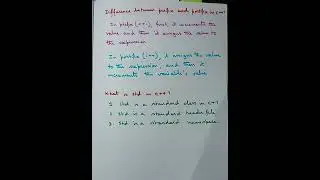 Difference between prefix and postfix in c++?
In prefix (++i), first it increments the
value and then it assigns the value to
the expression
In postfix (i++), it assigns the value
to the expression, and then it
increments the variable's value
What is Std in c++?
1. Std is a standard class in c++
2. Std is a standard header file
3. Std is a standard namespace